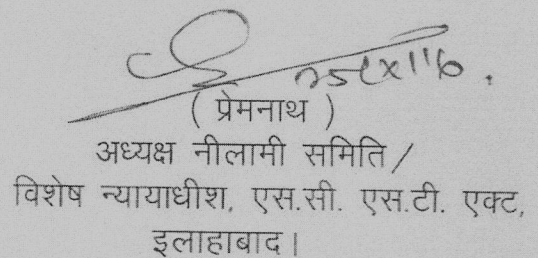 ( प्रेमनाथ )
अध्यक्ष नीलामी समिति /
विशेष न्यायाधीश, एस.सी. एस.टी. एक्ट,
इलाहाबाद।